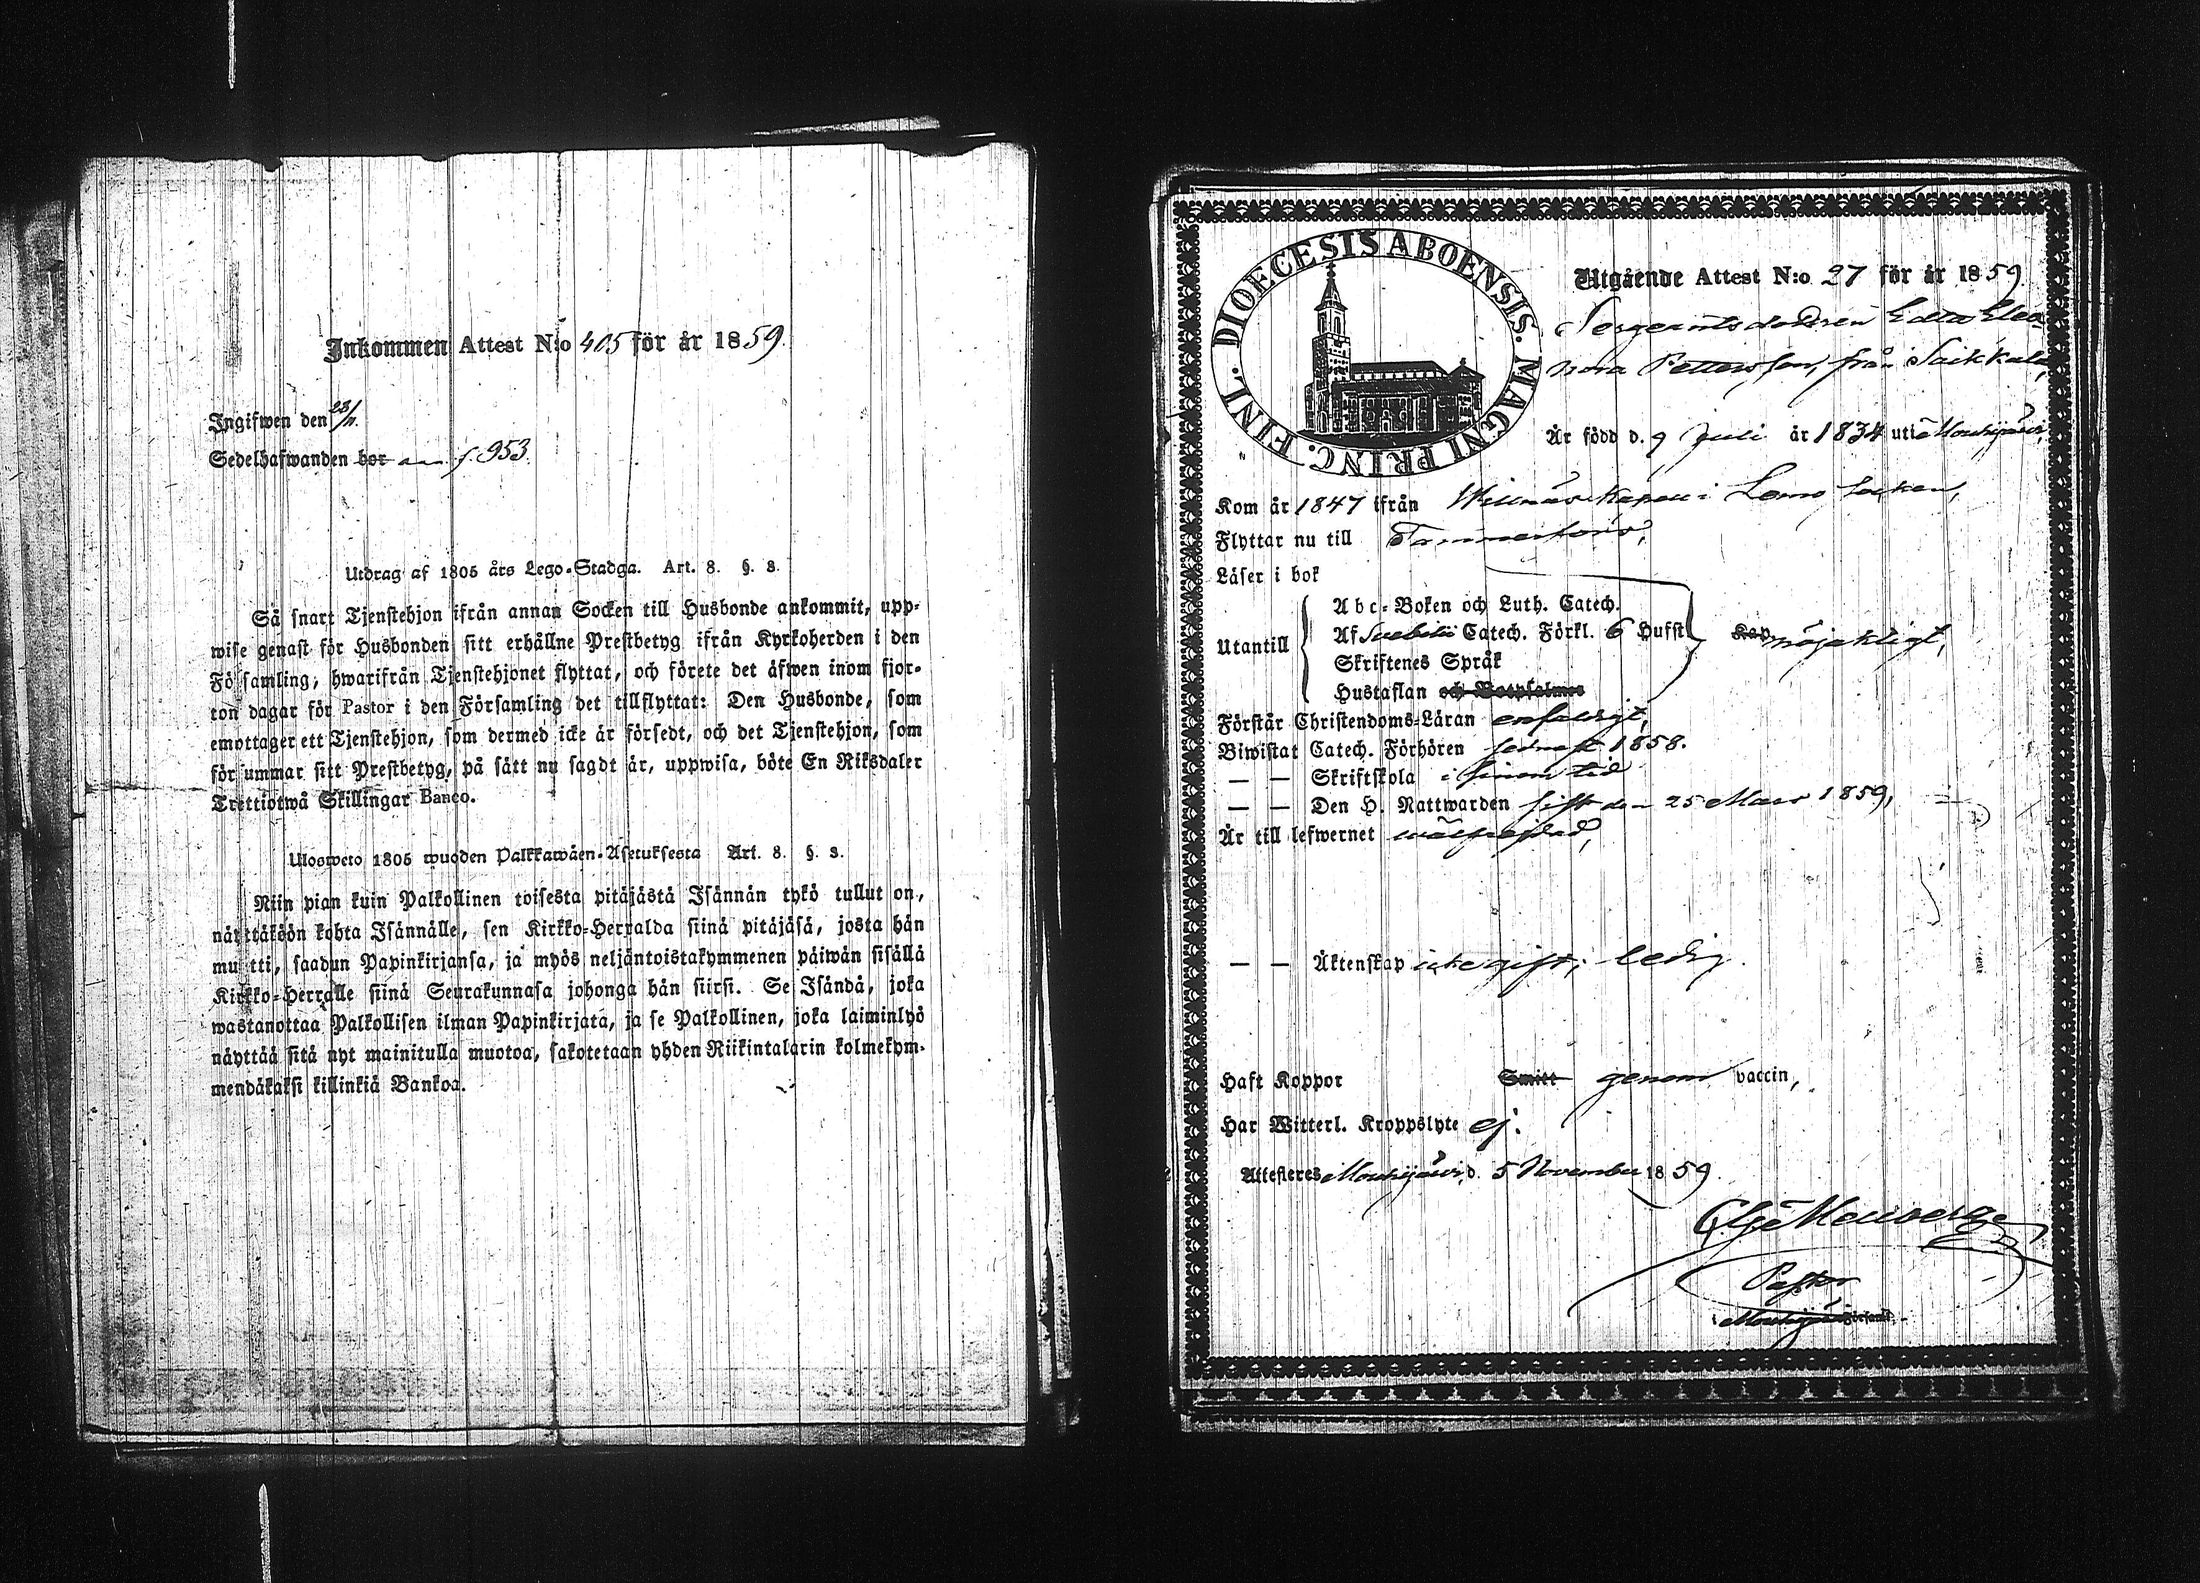 Inkommen Attest N:o 405 för år 1859.
Ingifwen den 23/11.
Sedelhafwanden bor f. 953.
Utdrag af 1805 års Lego-Stadga. Art. 8. §. 3.
Så snart Tjenstehjon ifrån annan Socken till Husbonde ankommit, upp-
wise genast för Husbonden sitt erhållne Prestbetyg ifrån Kyrkoherden i den
Församling, hwarifrån Tjenstehjonet flyttat, och förete det äfwen inom fjor-
ton dagar för Pastor i den Församling det tillflyttat: Den Husbonde, som
emottager ett Tjenstehjon, som dermed icke är försedt, och det Tjenstehjon, som
försummar sitt Prestbetyg, på sätt nu sagdt är, uppwisa, böte En Riksdaler
Trettiotwå Skillingar Banco.
Ulosweto 1805 wuoden Palkkawäen-Asetuksesta Art. 8. §. 3.
Niin pian kuin Palkollinen toisesta pitäjästä Isännän tykö tullut on,
näyttäköön kohta Isännälle, sen Kirkko-Herralda siinä pitäjäsä, josta hän
muutti, saadun Papinkirjansa, ja myös neljäntoistakymmenen päiwän sisällä
Kirkko-Herralle siinä Seurakunnasa johonga hän siirsi. Se Isändä, joka
wastanottaa Palkollisen ilman Papinkirjata, ja se Palkollinen, joka laiminlyö
näyttää sitä nyt mainitulla muotoa, sakotetaan yhden Riikintalarin kolmekym-
mendäkaksi killinkiä Bankoa.
DIOECESIS ABOENSIS. MAGNI PRINC. FINL.
Utgående Attest N:o 27 för år 1859
Sergeantsdottren Edla Eleo-
nora Pettersson, från Saikkala,
Är född d. 9 Juli år 1834 uti Mouhijärvi,
Kom år 1847 ifrån Willnäs Kapell i Lemo Socken,
Flyttar nu till Tammerfors,
Läser i bok
Utantill
Abc-Boken och Luth. Catech.
Af Svebilii Catech. Förkl. 6 Hufst.
Skriftenes Språk
Hustaflan och Botpsalmer
Kap nöjaktligt,
Förstår Christendoms-Läran enfaldigt,
Biwistat Catech. Förhören sednast 1858.
— — Skriftskola i sinom tid
— — Den H. Nattwarden sist den 25 Mars 1859,
Är till lefwernet wälfrejdad,
— — Äktenskap icke gift; ledig.
Haft Koppor Smitt genom vaccin,
Har Witterl. Kroppslyte ej.
Attesteres Mouhijärvi, d. 5 November 1859.
Pastor
i Mouhijärvi Församl.